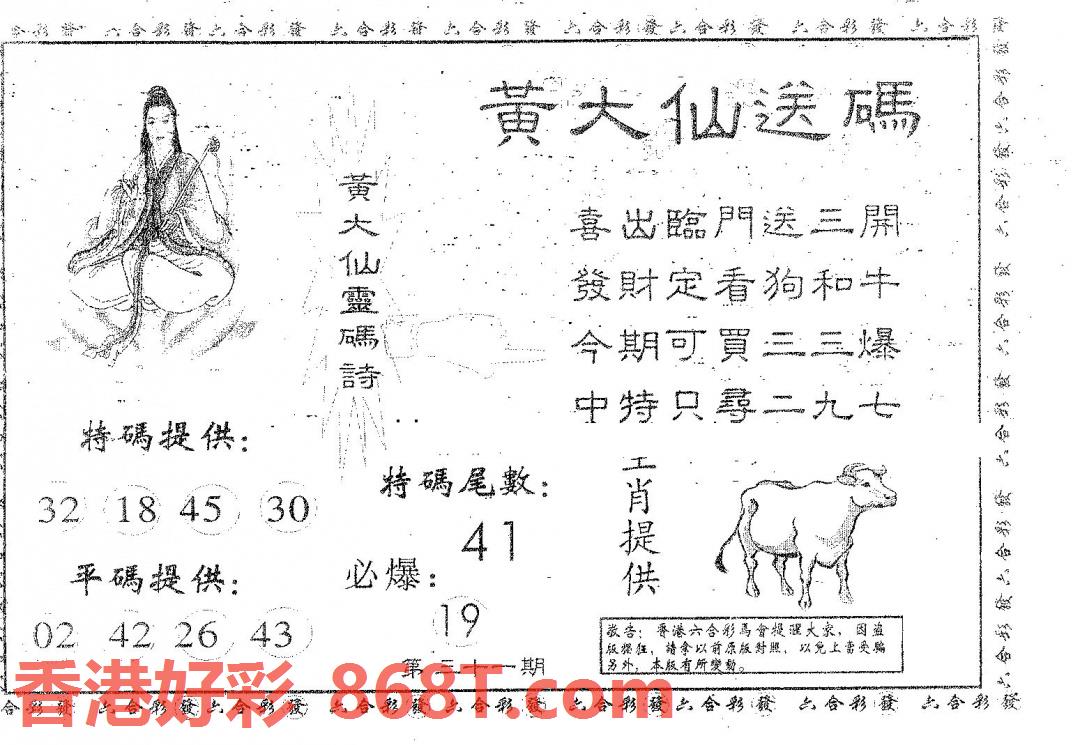 合彩發 六合彩發六合彩發 六合彩發六合彩發 六合彩發六合彩發 六合彩發 六合彩發
黃大仙送碼
黃大仙靈碼詩
喜出臨門送三開
發財定看狗和牛
今期可買二三爆
中特只尋二九七
特碼提供：
32 18 45 30
平碼提供：
02 42 26 43
特碼尾數：
41
必爆：
19
第三十一期
肖提供
敬告：香港六合彩馬會提醒大家，因盜
版猖狂，請拿以前原版對照，以免上當受騙
另外，本版有所變動。
香港好彩 868T.com
合彩發 六合彩發六合彩發 六合彩發六合彩發 六合彩發六合彩發 六合彩發 六合彩發